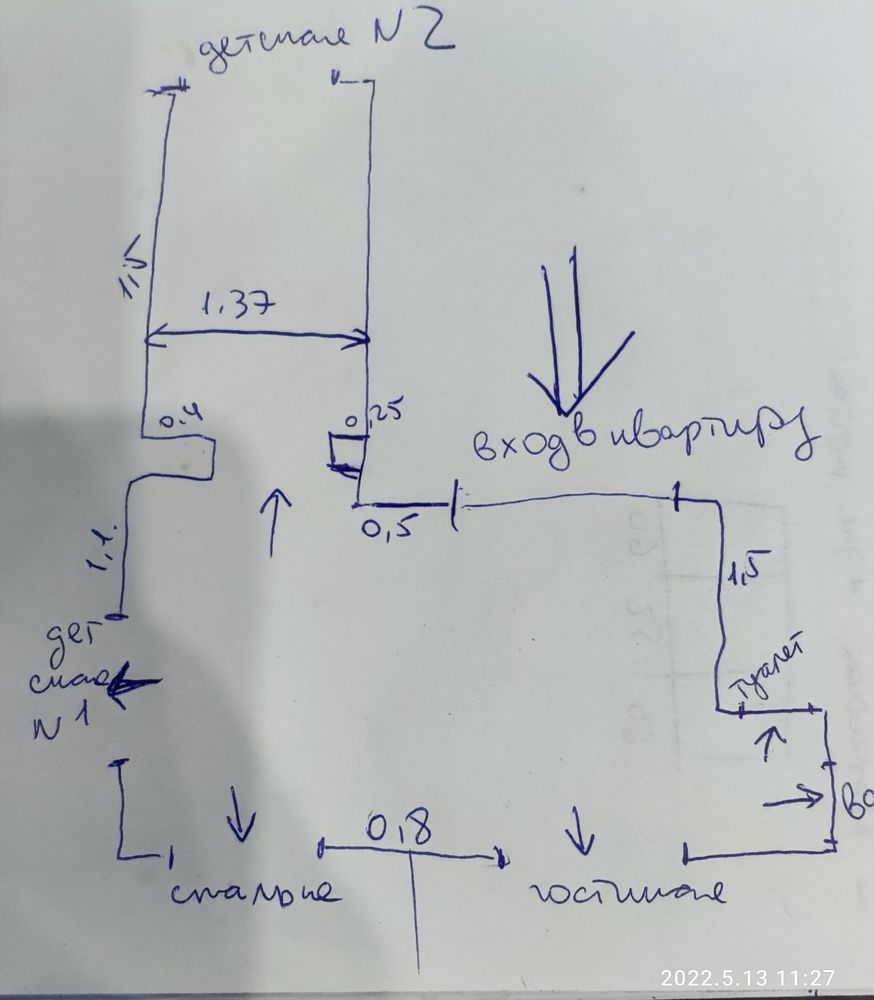 детская N2
1,5
1,37
0,4
0,25
вход в квартиру
0,5
1,1.
1,5
дет
ская
N1
туалет
ва
0,8
спальня
гостиная
2022.5.13 11:27